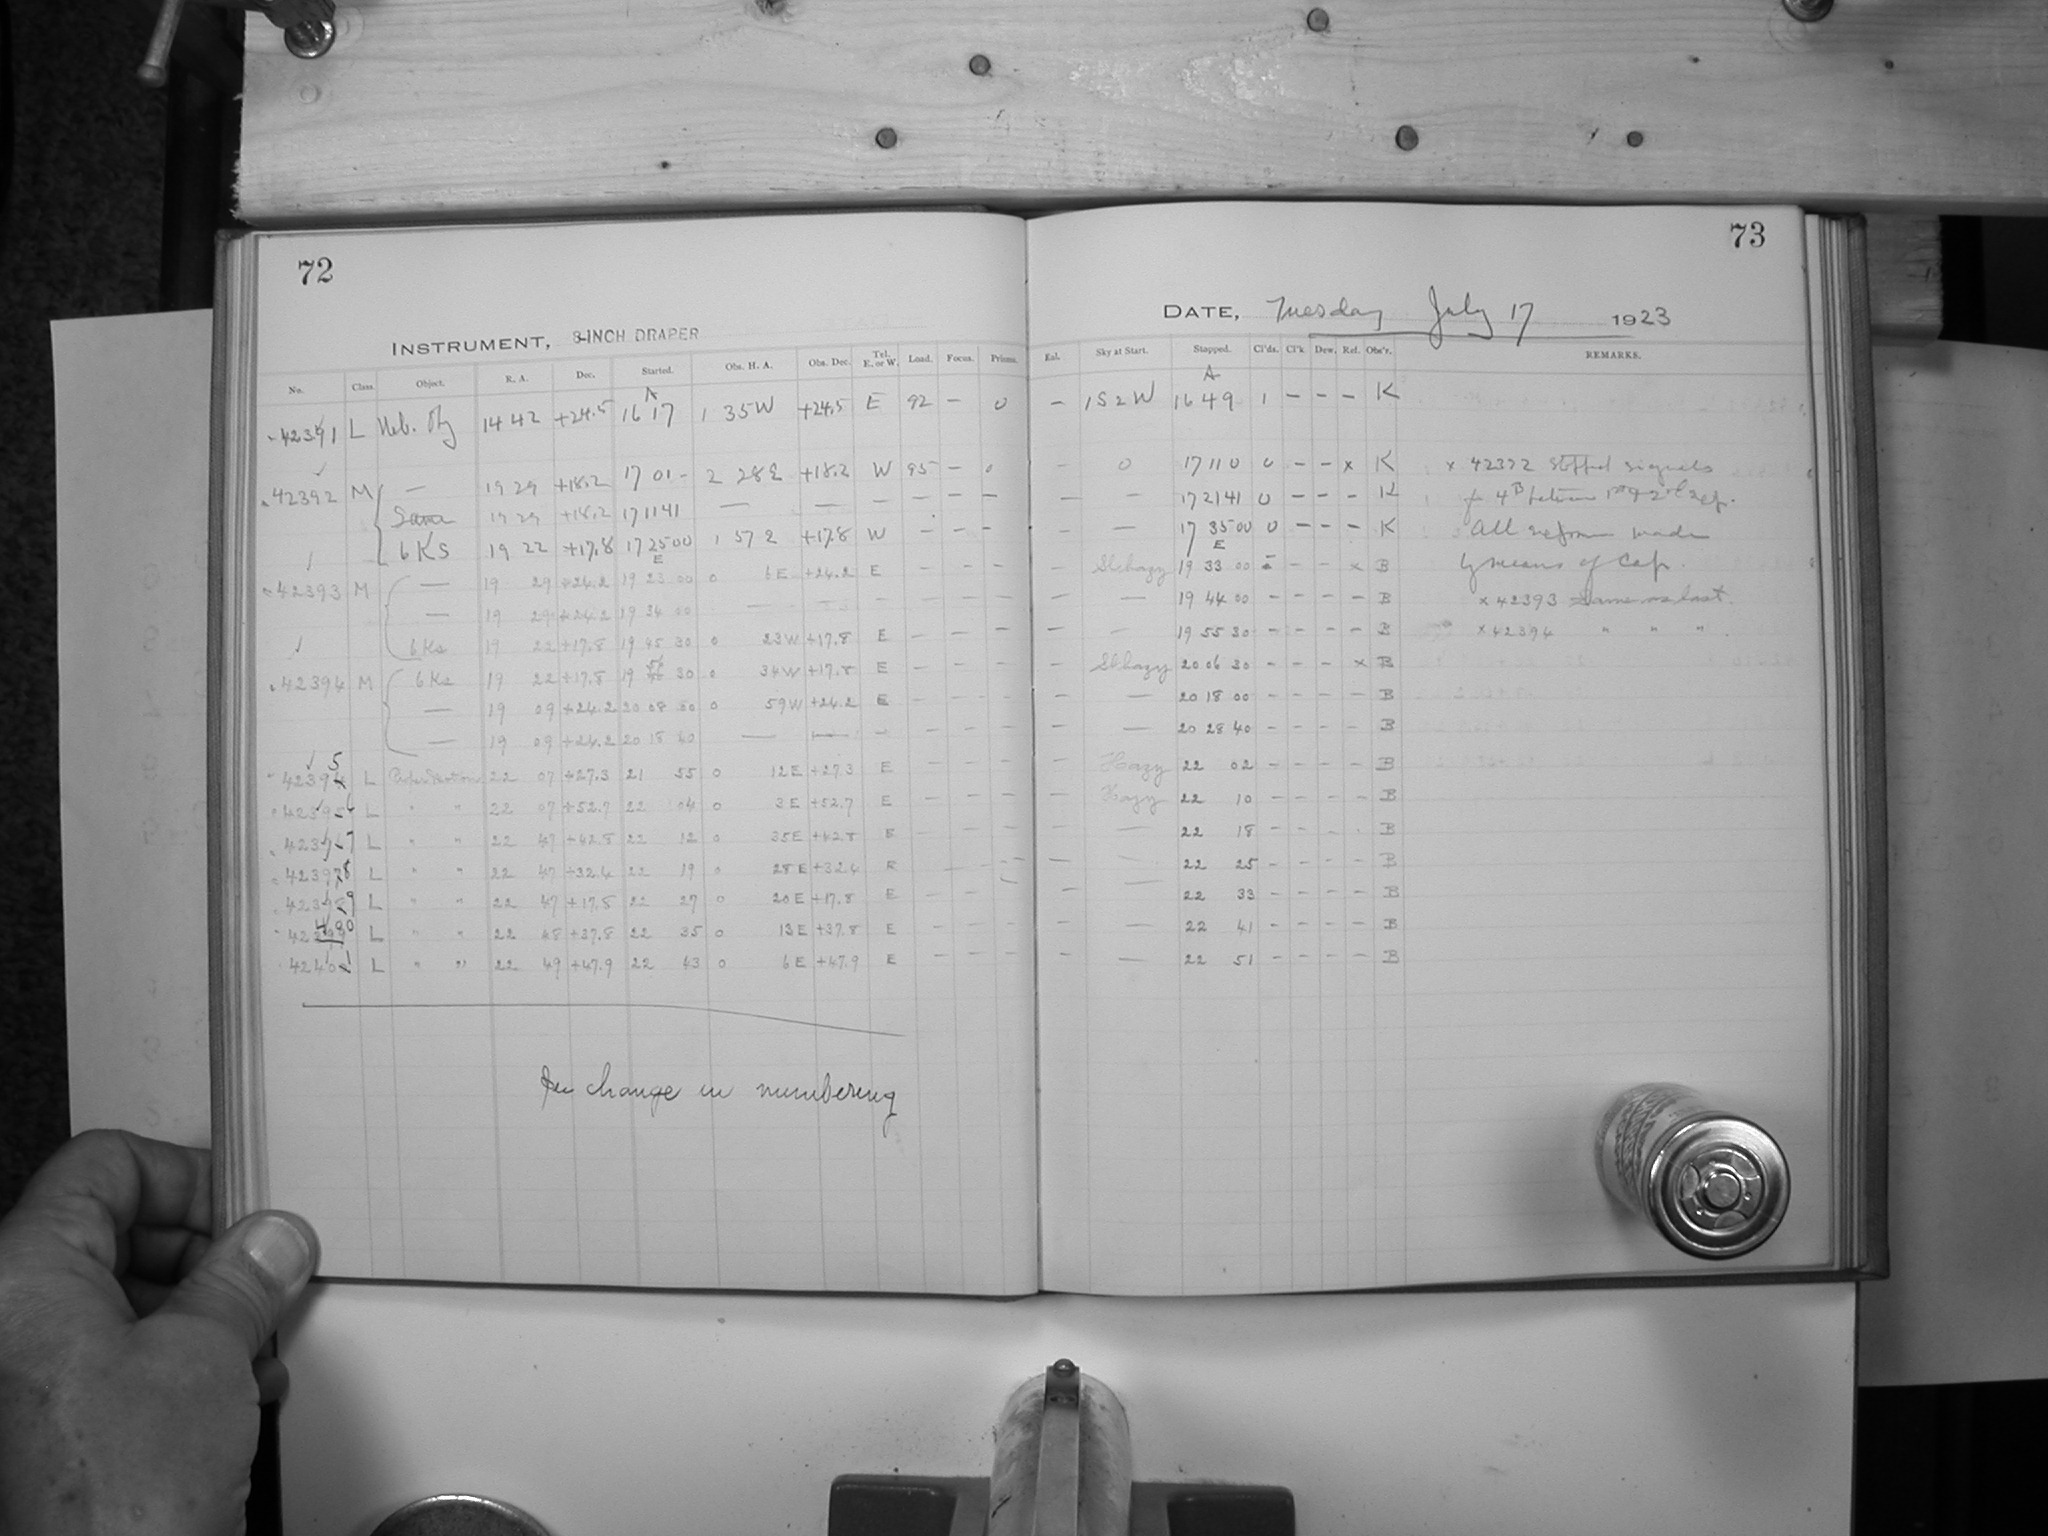 72
73
INSTRUMENT, 8-INCH DRAPER
DATE, Tuesday July 17 1923
No. Class. Object. R. A. Dec. Started. Obs. H. A. Obs. Dec. Tel. E. or W. Load. Focus. Prisms. Eal. Sky at Start. Stopped. Cl'ds. Cl'k Dew. Ref. Obs'r. REMARKS.
A A
42391 L Neb. 14 42 +24.5 16 17 1 35W +24.5 E 92 – 0 – 1S2W 16 49 1 – – – K
42392 M – 19 29 +18.2 17 01 - 2 28E +18.2 W 95 – 0 – 0 17 11 0 0 – – x K x 42392 signals
Same 19 29 +18.2 17 11 41 — — – – – – — – 17 21 41 0 – – – K
6 Ks 19 22 +17.8 17 25 00 1 57 E +17.8 W – – – – — 17 35 00 0 – – – K All made
E E
42393 M — 19 29 +24.2 19 23 00 0 6E +24.2 E – – – – Sl. hazy 19 33 00 – – x B by means of Cap.
— 19 29 +24.2 19 34 00 — – – – – – — 19 44 00 – – – – B x 42393 same as last
6 Ks 19 22 +17.8 19 45 30 0 23W +17.8 E – – – – – 19 55 30 – – – – B x 42394 " " "
42394 M 6 Ks 19 22 +17.8 19 56 30 0 34W +17.8 E – – – – Sl. hazy 20 06 30 – – – x B
— 19 09 +24.2 20 08 00 0 59W +24.2 E – – – – — 20 18 00 – – – – B
— 19 09 +24.2 20 18 40 — — – – – – – — 20 28 40 – – – – B
42395 L 22 07 +27.3 21 55 0 12E +27.3 E – – – – Hazy 22 02 – – – – B
42396 L " " 22 07 +52.7 22 04 0 3E +52.7 E – – – – Hazy 22 10 – – – – B
42397 L " " 22 47 +42.8 22 12 0 35E +42.8 E – – – – — 22 18 – – – B
42398 L " " 22 47 +32.4 22 19 0 28E +32.4 E – – – — 22 25 – – – – B
42399 L " " 22 47 +17.8 22 27 0 20E +17.8 E – – – – — 22 33 – – – – B
42400 L " " 22 48 +37.8 22 35 0 13E +37.8 E – – – – — 22 41 – – – – B
42401 L " " 22 49 +47.9 22 43 0 6E +47.9 E – – – – — 22 51 – – – – B
change in numbering